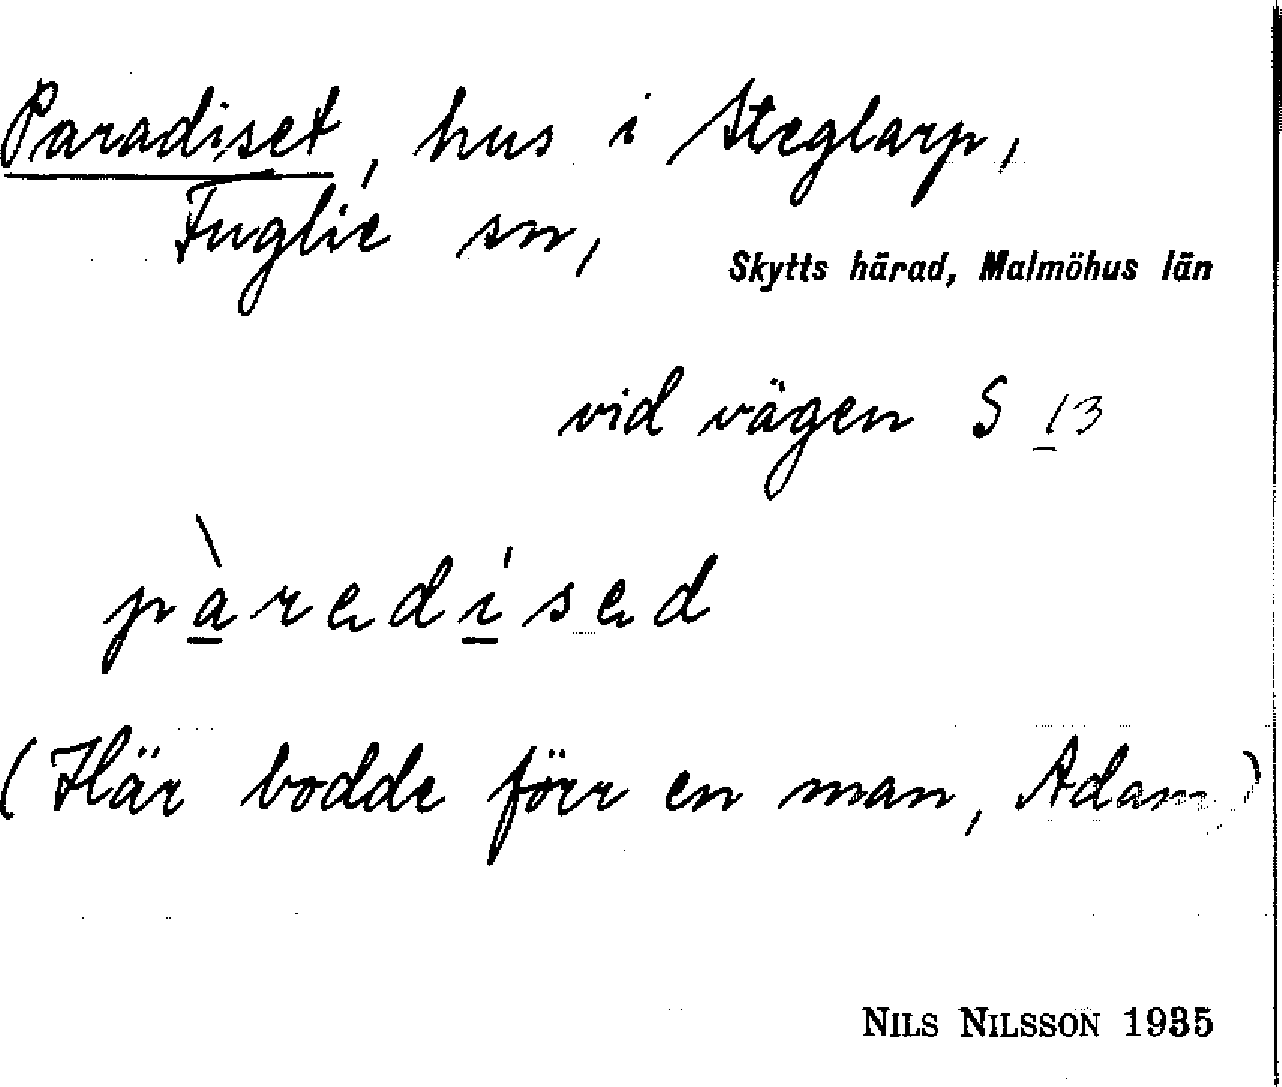 Paradiset, hus i Steglarp,
Fuglie sn,
Skytts härad, Malmöhus län
vid vägen S 13
pàredísed
(Här bodde förr en man, Adam)
NILS NILSSON 1935